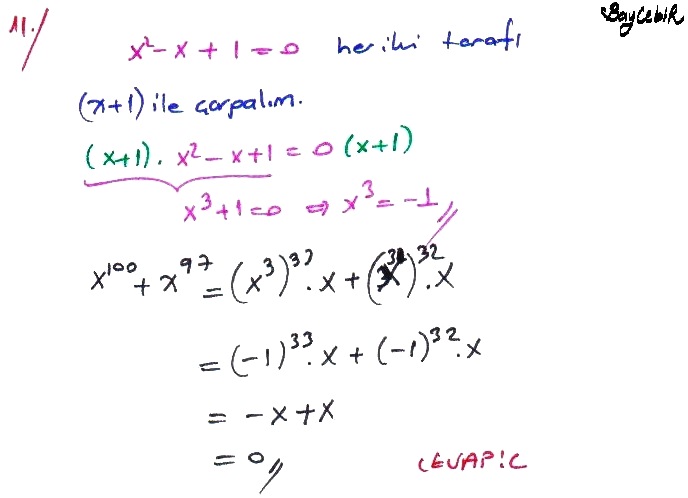 BayCebir
11./
x² - x + 1 = 0 her iki tarafı
(x+1) ile çarpalım.
(x+1). x² - x + 1 = 0 (x+1)
x³ + 1 = 0 ⇒ x³ = -1
x¹⁰⁰ + x⁹⁷ = (x³)³³. x + (x³)³². x
= (-1)³³. x + (-1)³². x
= -x + x
= 0
CEVAP: C